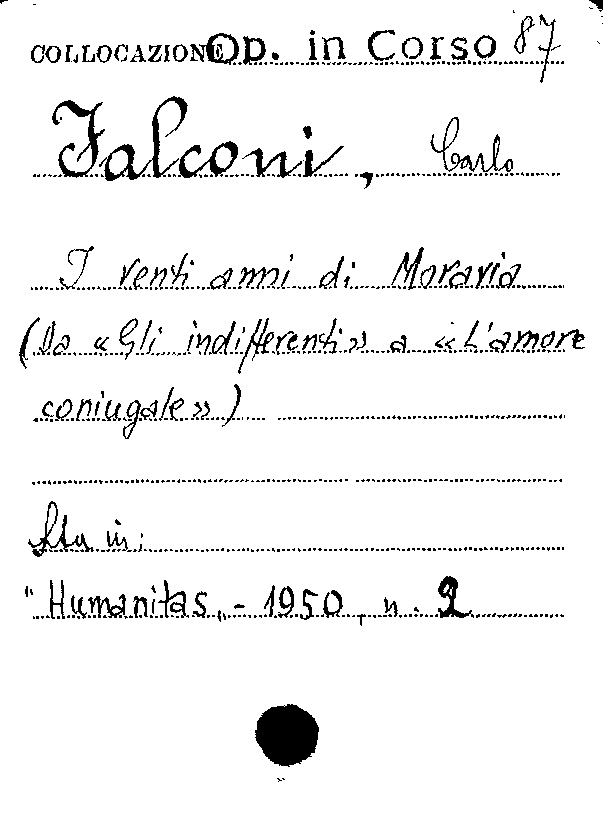 COLLOCAZIONE Op. in Corso 87
Falconi, Carlo
I venti anni di Moravia
(Da «Gli indifferenti» a «L'amore
coniugale»)
Sta in:
"Humanitas„ - 1950, n. 2